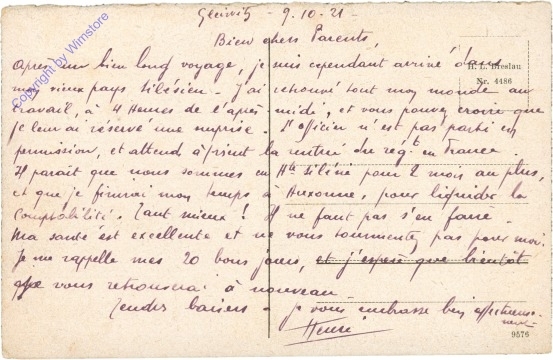 Gleiwitz - 9.10-21 -
Bien chers Parents,
Après un bien long voyage, je suis cependant arrivé dans
mon vieux pays Silésien - J'ai retrouvé tout mon monde au
travail, à 4 Heures de l'après-midi, et vous pouvez croire que
je leur ai réservé une surprise. L'officier n'est pas parti en
permission, et attend à présent la rentrée du régt en France.
Il parait que nous sommes en Hte Silésie pour 2 mois au plus,
et que je finirai mon temps à Auxonne, pour liquider la
comptabilité. Tant mieux! Il ne faut pas s'en faire.
Ma santé est excellente et ne vous tourmentez pas pour moi.
Je me rappelle mes 20 bons jours, et j'espère que bientôt
je vous retrouverai à nouveau -
Tendres baisers - je vous embrasse bien affectueuse-
ment
Henri
H. L. Breslau
Nr. 4486
9576
Copyright by Wimstore